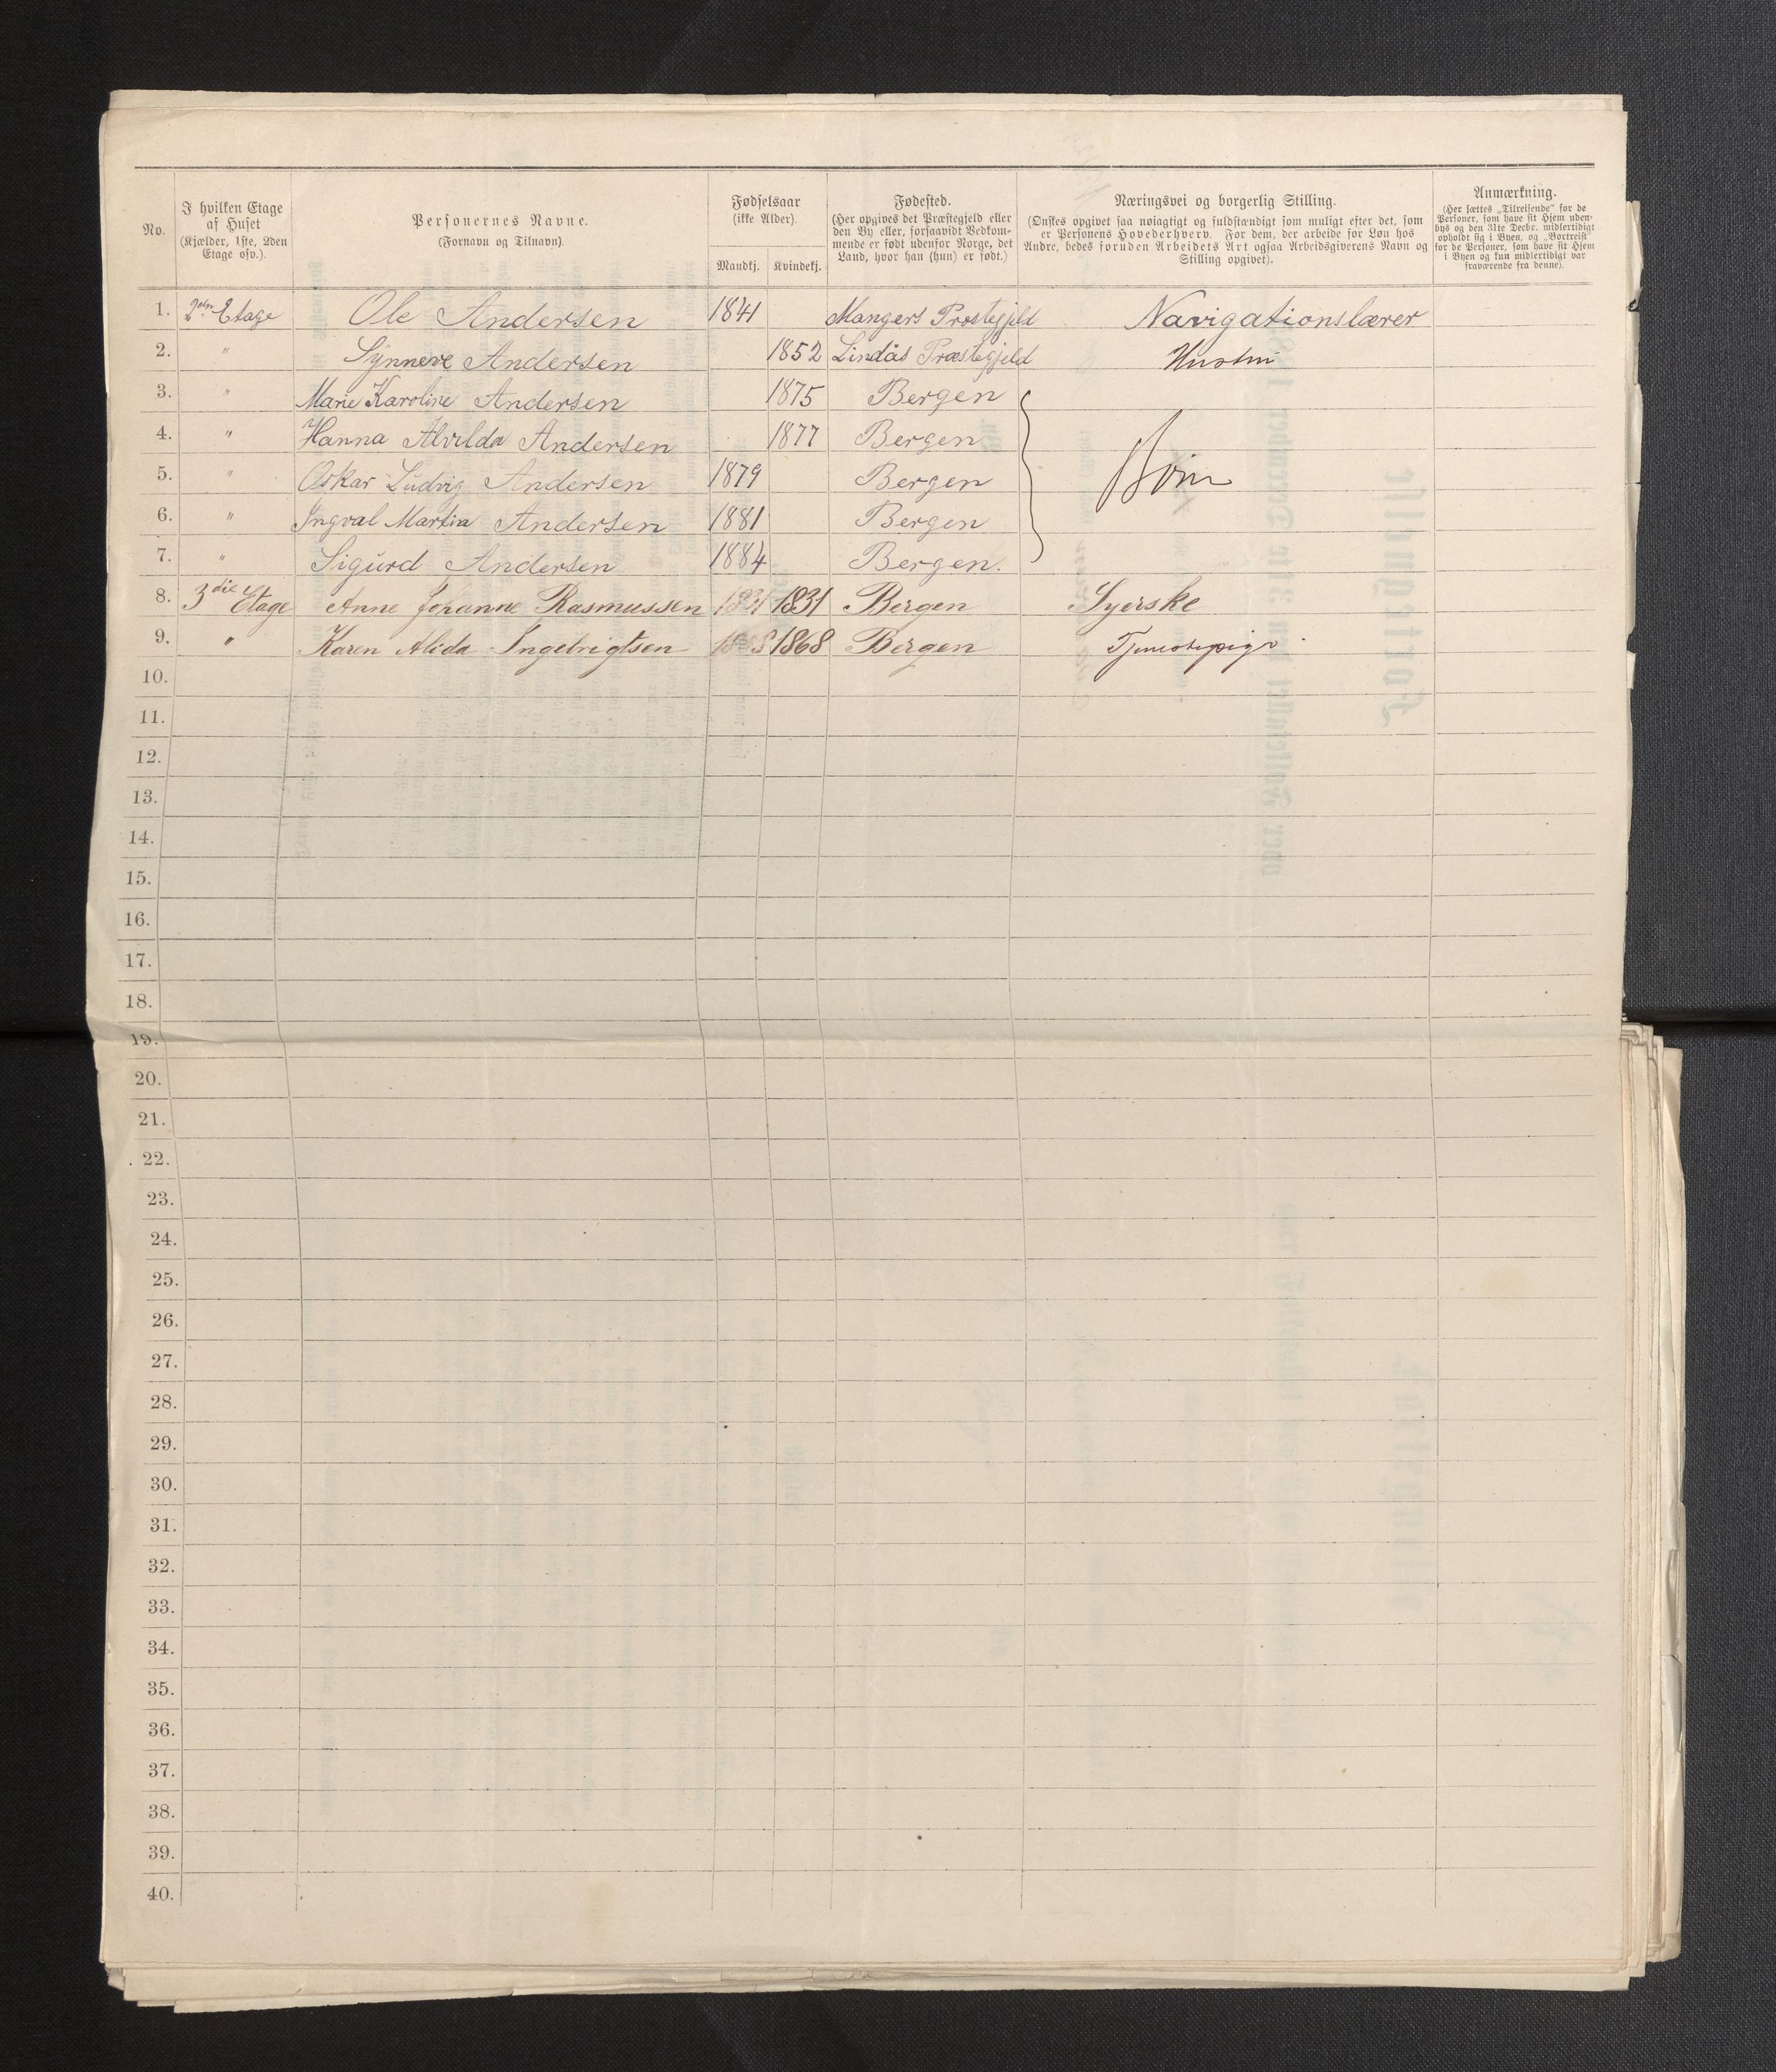 No.
I hvilken Etage
af Huset
(Kjælder, 1ste, 2den
Etage osv.).
Personernes Navne.
(Fornavn og Tilnavn).
Fødselsaar
(ikke Alder).
Mandkj.
Kvindekj.
Fødested.
(Her opgives det Præstegjeld eller
den By eller, forsaavidt Vedkom-
mende er født udenfor Norge, det
Land, hvor han (hun) er født.)
Næringsvei og borgerlig Stilling.
(Ønskes opgivet saa nøiagtigt og fuldstændigt som muligt efter det, som
er Personens Hovederhverv. For dem, der arbeide for Løn hos
Andre, bedes foruden Arbeidets Art ogsaa Arbeidsgiverens Navn og
Stilling opgivet).
Anmærkning.
(Her sættes „Tilreisende“ for de
Personer, som have sit Hjem uden-
bys og den 31te Decbr. midlertidigt
opholdt sig i Byen, og „Bortreist“
for de Personer, som have sit Hjem
i Byen og kun midlertidigt var
fraværende fra denne).
1. 2den Etage Ole Andersen 1841 Mangers Prestegjeld Navigationslærer
2. " Synneve Andersen 1852 Lindås Præstegjeld Hustru
3. " Marie Karoline Andersen 1875 Bergen
4. " Hanna Alvilda Andersen 1877 Bergen
Børn
5. " Oskar Ludvig Andersen 1879 Bergen
6. " Ingval Martin Andersen 1881 Bergen
7. " Sigurd Andersen 1884 Bergen.
8. 3die Etage Anne Johanne Rasmussen 1831 1831 Bergen Syerske
9. " Karen Alida Ingebrigtsen 1868 Bergen Tjenestepige
10.
11.
12.
13.
14.
15.
16.
17.
18.
19.
20.
21.
22.
23.
24.
25.
26.
27.
28.
29.
30.
31.
32.
33.
34.
35.
36.
37.
38.
39.
40.